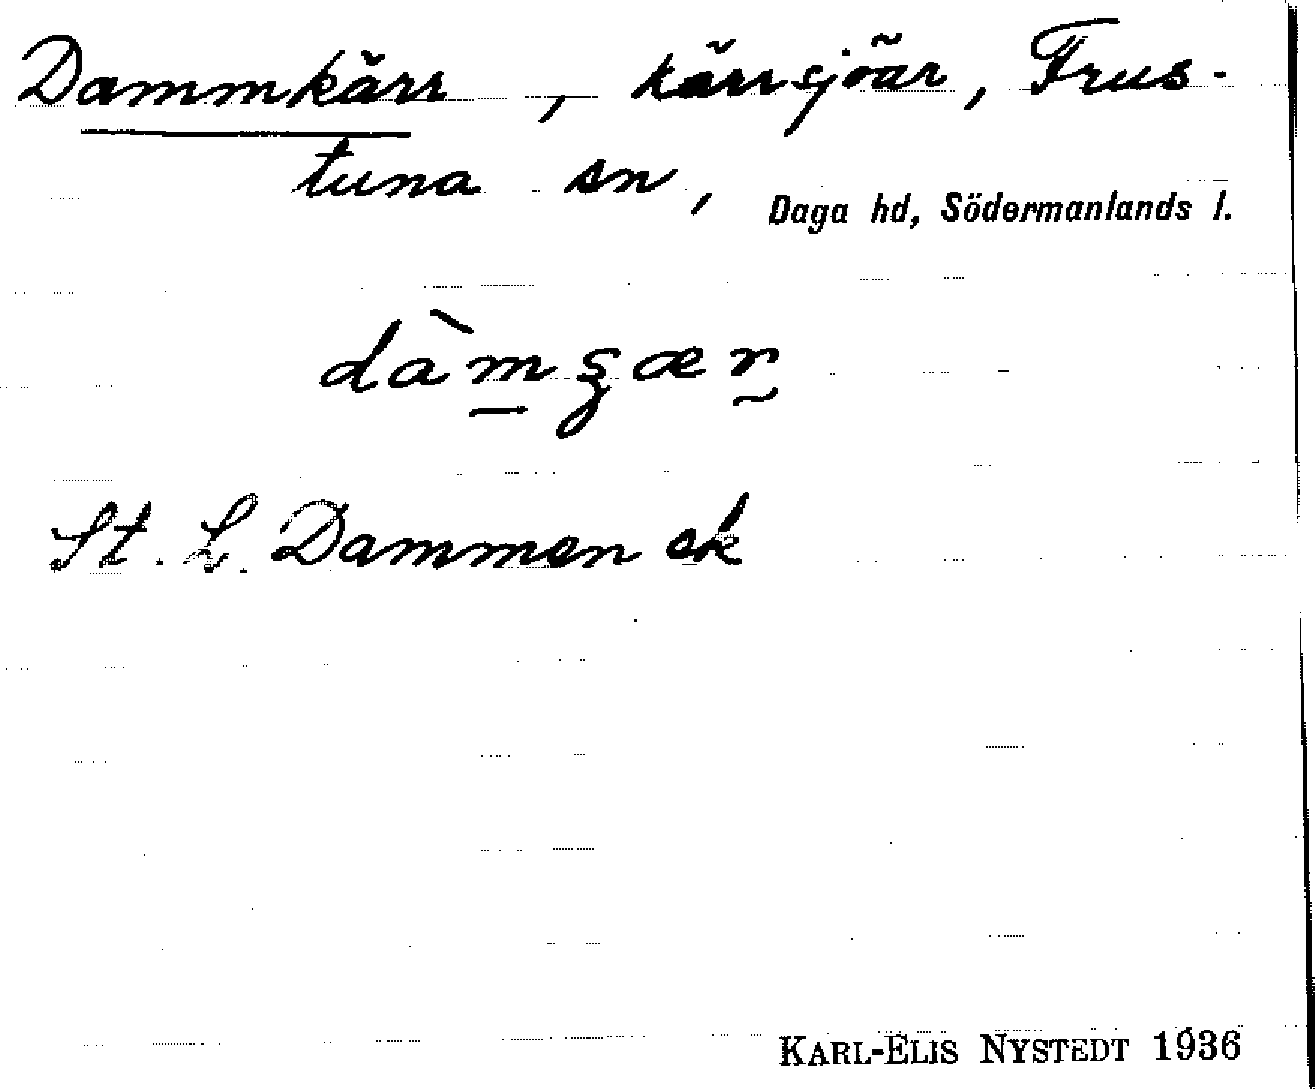 Dammkärr, kärrsjöar, Frus-
tuna sn, Daga hd, Södermanlands l.
dàm̲ʂær̰
St. L. Dammen ek
KARL-ELIS NYSTEDT 1936